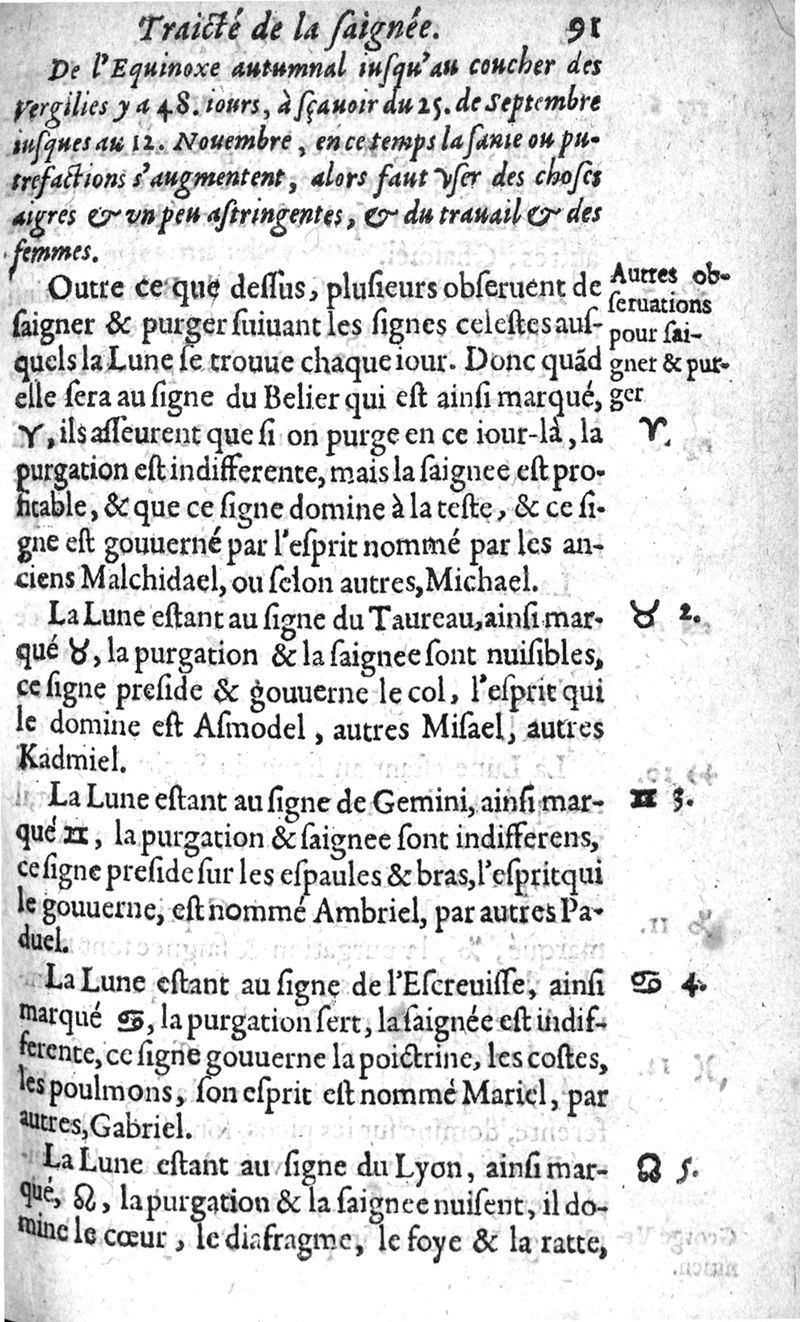 Traicté de la ſaignée. 91
De l'Equinoxe autumnal iuſqu'au coucher des
Vergilies y a 48. iours, à ſçauoir du 25. de Septembre
iuſques au 12. Nouembre, en ce temps la ſanie ou pu-
trefactions s'augmentent, alors faut vſer des choſes
aigres & vn peu aſtringentes, & du trauail & des
femmes.
Outre ce que deſſus, pluſieurs obſeruent de
ſaigner & purger ſuiuant les ſignes celeſtes auſ-
quels la Lune ſe trouue chaque iour. Donc quãd
elle ſera au ſigne du Belier qui eſt ainſi marqué,
♈, ils aſſeurent que ſi on purge en ce iour-là, la
purgation eſt indifferente, mais la ſaignee eſt pro-
fitable, & que ce ſigne domine à la teſte, & ce ſi-
gne eſt gouuerné par l'eſprit nommé par les an-
ciens Malchidael, ou ſelon autres, Michael.
Autres ob-
ſeruations
pour ſai-
gner & pur-
ger
♈.
La Lune eſtant au ſigne du Taureau, ainſi mar-
qué ♉, la purgation & la ſaignee ſont nuiſibles,
ce ſigne preſide & gouuerne le col, l'eſprit qui
le domine eſt Aſmodel, autres Miſael, autres
Kadmiel.
♉ 2.
La Lune eſtant au ſigne de Gemini, ainſi mar-
qué ♊, la purgation & ſaignee ſont indifferens,
ce ſigne preſide ſur les eſpaules & bras, l'eſprit qui
le gouuerne, eſt nommé Ambriel, par autres Pa-
duel.
♊ 3.
La Lune eſtant au ſigne de l'Eſcreuiſſe, ainſi
marqué ♋, la purgation ſert, la ſaignée eſt indif-
ferente, ce ſigne gouuerne la poictrine, les coſtes,
les poulmons, ſon eſprit eſt nommé Mariel, par
autres, Gabriel.
♋ 4.
La Lune eſtant au ſigne du Lyon, ainſi mar-
qué, ♌, la purgation & la ſaignee nuiſent, il do-
mine le cœur, le diafragme, le foye & la ratte,
♌ 5.